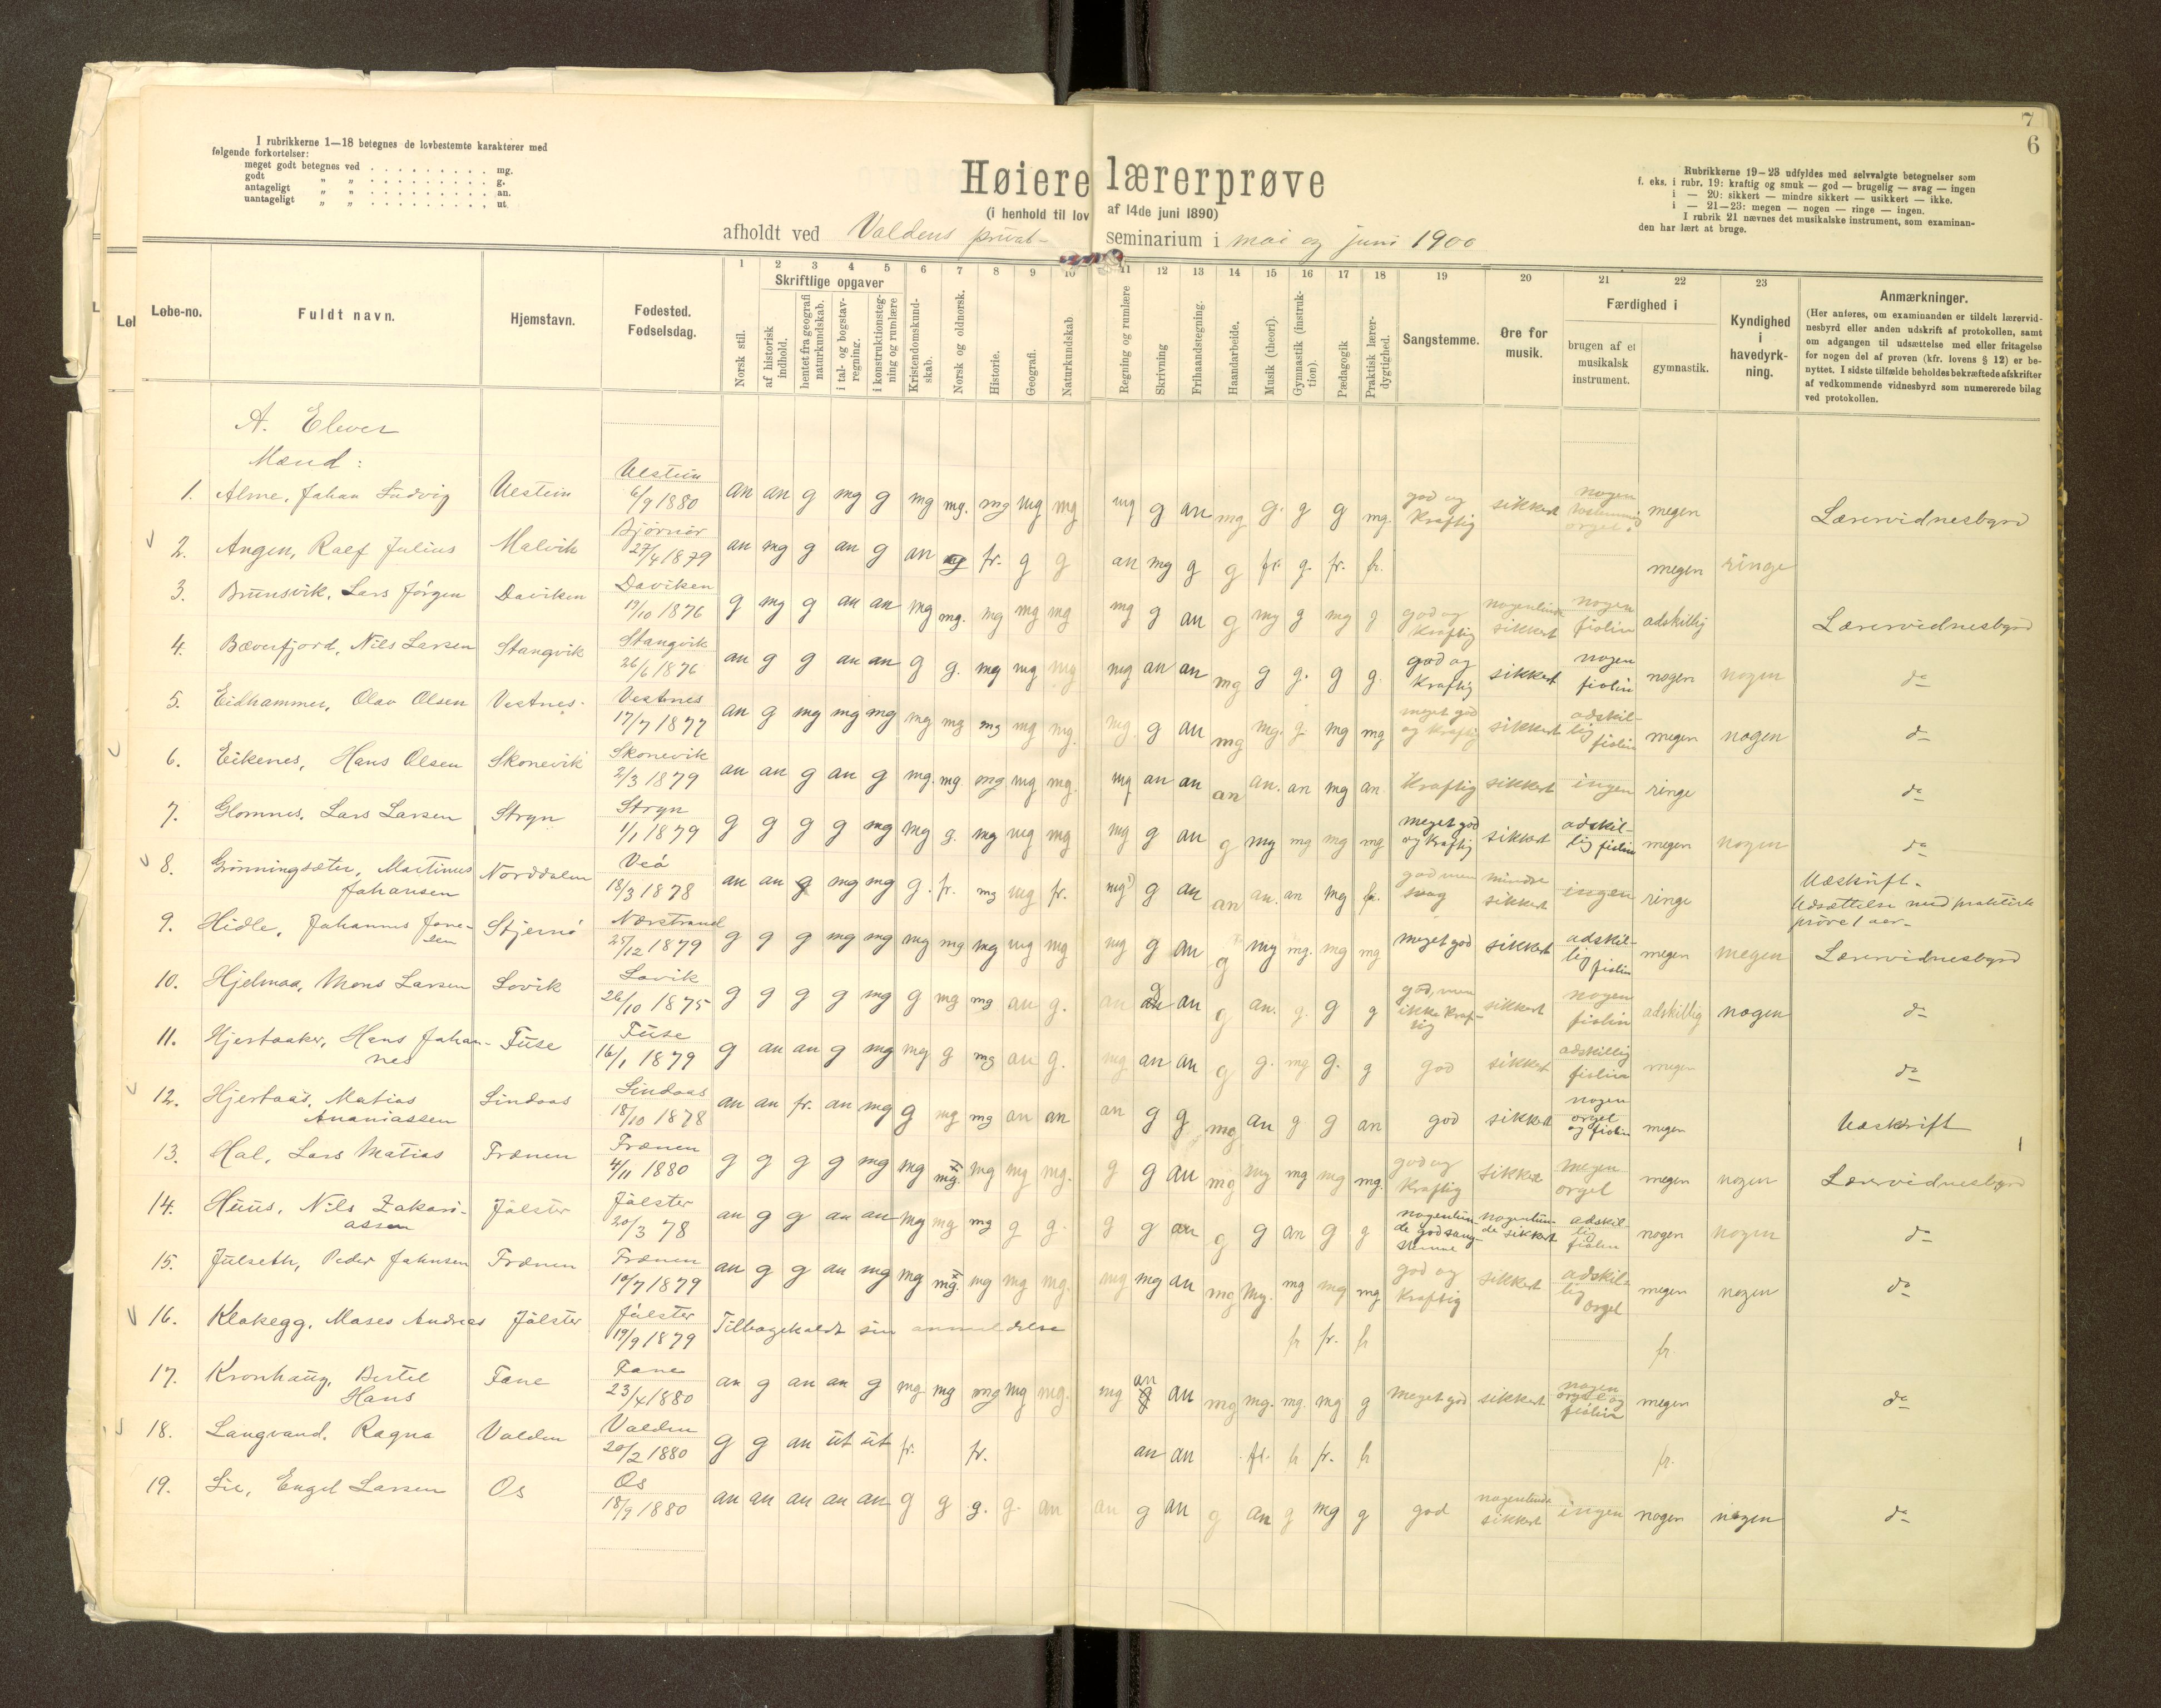 7
6
I rubrikkerne 1—18 betegnes de lovbestemte karakterer med
følgende forkortelser:
meget godt betegnes ved . . . . . . . . . . mg.
godt „ „ . . . . . . . . . . g.
antageligt „ „ . . . . . . . . . . an.
uantageligt „ „ . . . . . . . . . . ut.
Høiere lærerprøve
(i henhold til lov af 14de juni 1890)
afholdt ved Voldens privat- seminarium i mai og juni 1900
Rubrikkerne 19—23 udfyldes med selvvalgte betegnelser som
f. eks. i rubr. 19: kraftig og smuk — god — brugelig — svag — ingen
i — 20: sikkert — mindre sikkert — usikkert — ikke.
i — 21—23: megen — nogen — ringe — ingen.
I rubrik 21 nævnes det musikalske instrument, som examinan-
den har lært at bruge.
Løbe-no.
Fuldt navn.
Hjemstavn.
Fødested.
Fødselsdag.
Skriftlige opgaver
1 Norsk stil.
2 af historisk indhold.
3 hentet fra geografi naturkundskab.
4 i tal- og bogstav-regning.
5 i konstruktionsteg-ning og rumlære
6 Kristendomskund-skab.
7 Norsk og oldnorsk.
8 Historie.
9 Geografi.
10 Naturkundskab
11 Regning og rumlære
12 Skrivning
13 Frihandstegning.
14 Haandarbeide.
15 Musik (theori).
16 Gymnastik (instruk-tion).
17 Pædagogik
18 Praktisk lærer-dygtighed.
19 Sangstemme.
20 Øre for musik.
Færdighed i
21 brugen af et musikalsk instrument.
22 gymnastik.
23 Kyndighed i havedyrk-ning.
Anmærkninger.
(Her anføres, om examinanden er tildelt lærervid-
nesbyrd eller anden udskrift af protokollen, samt
om adgangen til udsættelse med eller fritagelse
for nogen del af prøven (kfr. lovens § 12) er be-
nyttet. I sidste tilfælde beholdes bekræftede afskrifter
af vedkommende vidnesbyrd som nummererede bilag
ved protokollen.
A. Elever
Mænd:
1. Alme, Johan Ludvig Ulstein Ulstein 6/9 1880 an an g mg g mg mg. mg mg mg mg g an mg g. g g mg. god og kraftig sikkert nogen orgel megen Lærervidnesbyrd
2. Angen, Ralf Julius Malvik Bjørnør 27/4 1879 an mg g an g an fr. g g an mg g g fr. g. fr. fr. megen ringe
3. Brunsvik, Lars Jörgen Daviken Daviken 19/10 1876 g mg g an an mg mg. mg mg mg mg g an g mg g mg g god og kraftig nogenlunde sikkert nogen fiolin adskillig Lærervidnesbyrd
4. Bæverfjord, Nils Larsen Stangvik Stangvik 26/6 1876 an g g an an g g. mg mg mg mg an an mg g g. g g. god og kraftig sikkert nogen fiolin nogen nogen do
5. Eidhammer, Olav Olsen Vestnes. Vestnes 17/7 1877 an g mg mg mg mg mg mg mg mg. mg. g an mg mg. g. mg mg meget god og kraftig sikkert adskil-lig fiolin megen nogen do
6. Eikenes, Hans Olsen Skonevik Skonevik 2/3 1879 an an g an g mg. mg. mg mg mg. mg an an an an. an mg an. kraftig sikkert ingen ringe do
7. Glomnes, Lars Larsen Stryn Stryn 1/1 1879 g g g g mg mg g. mg mg mg mg g an g mg mg mg mg meget god og kraftig sikkert adskil-lig fiolin megen nogen do
8. Grönningsæter, Martinus Johansen Norddalen Veö 18/3 1878 an an g mg mg g. fr. mg mg fr. mg g an an an. an mg fr. god men svag mindre sikkert ingen ringe Udskrift. Udsættelse med praktisk pröve 1 aar.
9. Hidle, Johannes Jone-sen Stjernö Nærstrand 25/12 1879 g g g mg mg mg mg mg mg mg mg g an g mg mg. mg mg meget god sikkert adskil-lig fiolin megen megen Lærervidnesbyrd
10. Hjelmaa, Mons Larsen Lavik Lavik 26/10 1875 g g g g mg g mg mg an g. an g an g an. g. g g god, men ikke kraf-tig sikkert nogen fiolin adskillig nogen do
11. Hjertaaker, Hans Johan-nes Fuse Fuse 16/1 1879 g an an g mg mg g mg an g. mg an an g g. mg g. g god sikkert adskillig fiolin megen do
12. Hjertaas, Matias Ananiassen Lindaas Lindaas 18/10 1878 an an fr. an mg g mg mg an an an g g mg an g g an god sikkert nogen orgel og fiolin megen Udskrift
13. Hal, Lars Matias Frænen Frænen 4/11 1880 g g g g mg mg mg. mg mg mg. g g an mg mg mg mg mg. god og kraftig sikker megen orgel megen nogen Lærervidnesbyrd
14. Huus, Nils Zakari-assen Jölster Jölster 20/3 78 an g g an an mg mg mg g g. g g an g g an g g nogenlun-de god sang-stemme nogenlun-de sikkert adskil-lig fiolin nogen nogen do
15. Julseth, Peder Johnsen Frænen Frænen 10/7 1879 an g g an mg mg mg. mg mg mg. mg mg an mg mg. mg mg mg god og kraftig sikkert adskil-lig orgel megen nogen do
16. Klakegg, Moses Andreas Jölster Jölster 19/9 1879 Tilbagekaldt sin anmeldelse fr fr. fr fr.
17. Kronhaug, Bertel Hans Fane Fane 23/4 1880 an g an an g mg mg mg mg mg. mg an an mg mg. mg. mg g meget god sikkert nogen orgel og fiolin megen do
18. Langvand, Ragna Volden Volden 20/2 1880 g g an ut ut fr. fr. an an fr. fr fr. fr fr.
19. Lie, Engel Larsen Os Os 18/9 1880 an an an an an g g g. g. an an g an g an g mg g god nogenlunde sikkert ingen nogen nogen do